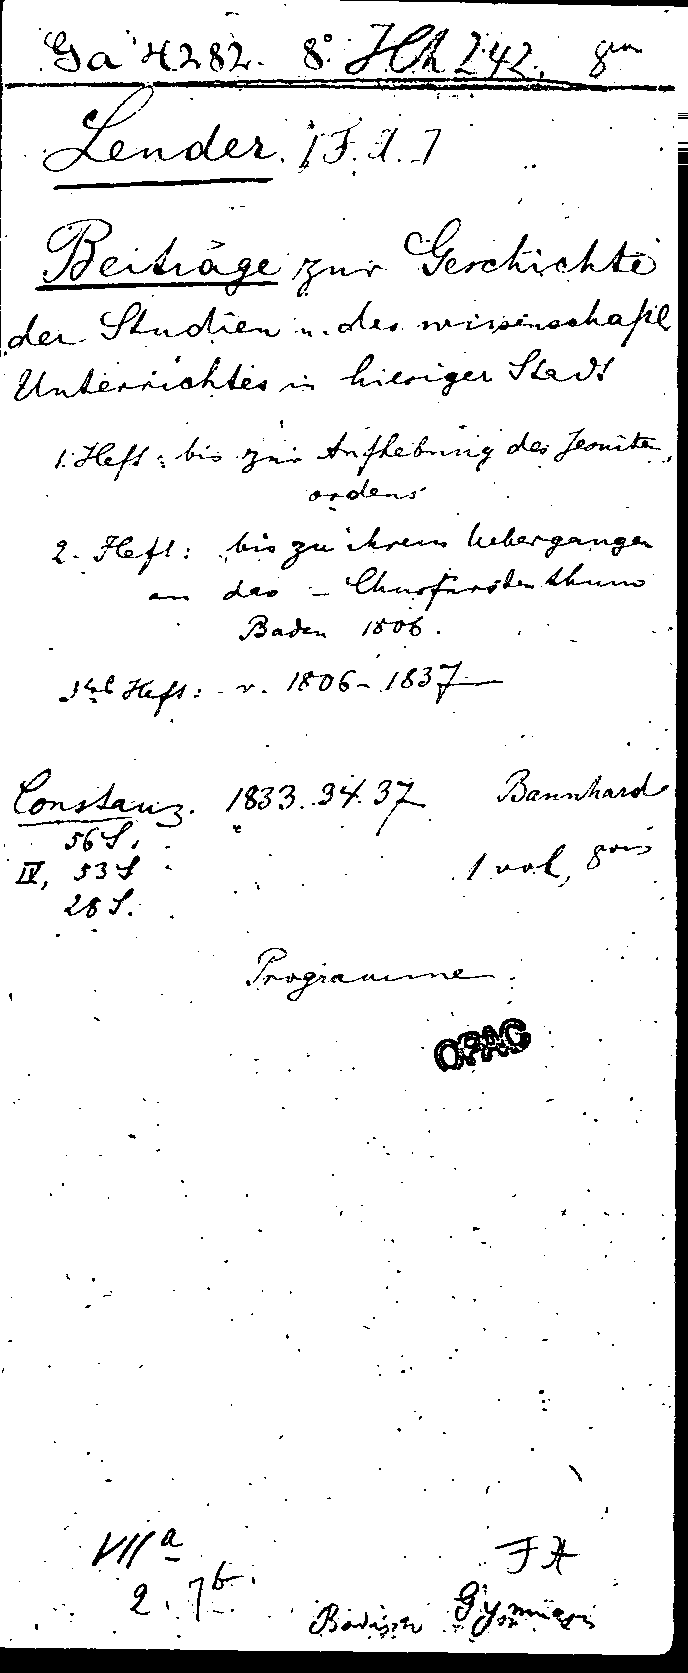 Ga 4282. 8° Hh 242.
Lender. [F. X.]
Beiträge zur Geschichte
der Studien u. des wissenschaftl
Unterrichtes in hiesiger Stadt
1. Heft: bis zur Aufhebung des Jesuiten
ordens
2. Heft: bis zu ihrem Uebergange
an das Churfürstenthum
Baden 1806.
3tes Heft: v. 1806-1837
Constanz. 1833. 34. 37 Bannhard
56 S.
IV, 53 S
28 S.
1 vol, 8vis
Programme
OPAC
VII a
2. 7b.
FA
Gymnasien